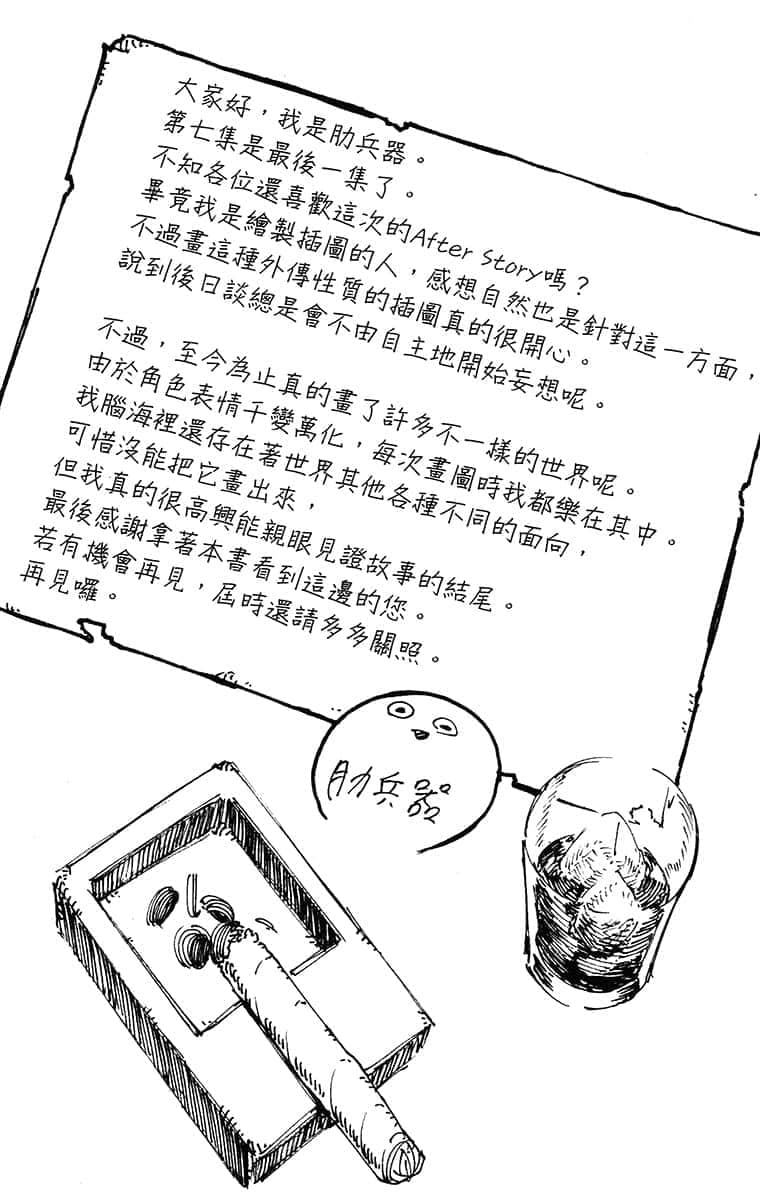 大家好，我是肋兵器。
第七集是最後一集了。
不知各位還喜歡這次的After Story嗎？
畢竟我是繪製插圖的人，感想自然也是針對這一方面，
不過畫這種外傳性質的插圖真的很開心。
說到後日談總是會不由自主地開始妄想呢。
不過，至今為止真的畫了許多不一樣的世界呢。
由於角色表情千變萬化，每次畫圖時我都樂在其中。
我腦海裡還存在著世界其他各種不同的面向，
可惜沒能把它畫出來，
但我真的很高興能親眼見證故事的結尾。
最後感謝拿著本書看到這邊的您。
若有機會再見，屆時還請多多關照。
再見囉。
肋兵器